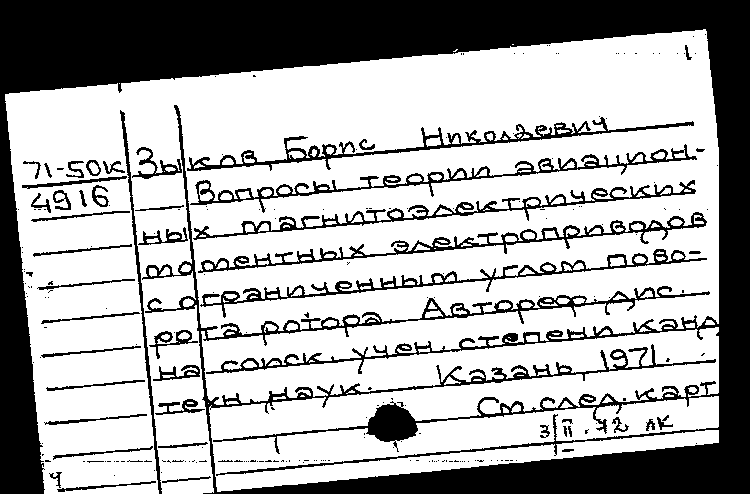 71-50К Зыков, Борис Николаевич
4916 Вопросы теории авиацион-
ных магнитоэлектрических
моментных электроприводов
с ограниченным углом пово-
рота ротора. Автореф. дис.
на соиск. учен. степени канд
техн. наук. Казань, 1971.
См. след. карт
3/II-72 ЛК